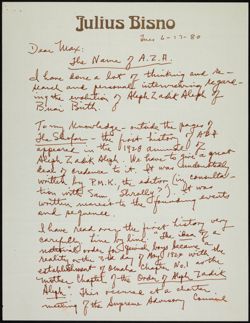 Julius Bisno
Tues 6-17-80
Dear Max:
The Name of A.Z.A.
I have done a lot of thinking and re-
search and personal interviewing regard-
ing the evolution of Aleph Zadik Aleph of
B'nai B'rith.
To my knowledge - outside the pages of
The Shofar - the first history of AZA
appeared in the 1929 annual of
Aleph Zadik Aleph. We have to give a great
deal of credence to it. It was
written by P.M.K. the editor (in consulta-
tion with Sam, Strelly?) It was
written nearest to the founding events
and sequence.
I have read over the first history very
carefully line by line. "The idea of a
national order for Jewish boys became a
reality on the 3rd day of May 1924 with the
establishment of Omaha Chapter No. 1 as the
"Mother Chapter of the Order of Aleph Zadik
Aleph." This occurred at a charter
meeting of the Supreme Advisory Council